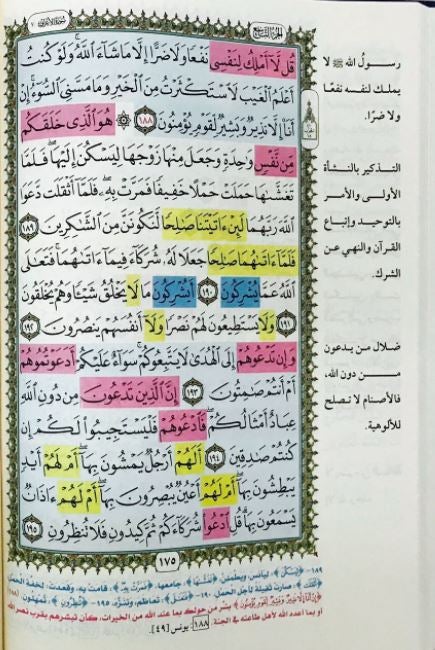 الجزء التاسع
سورة الأعراف ٧
قُل لَّآ أَمۡلِكُ لِنَفۡسِي نَفۡعٗا وَلَا ضَرًّا إِلَّا مَا شَآءَ ٱللَّهُۚ وَلَوۡ كُنتُ
أَعۡلَمُ ٱلۡغَيۡبَ لَٱسۡتَكۡثَرۡتُ مِنَ ٱلۡخَيۡرِ وَمَا مَسَّنِيَ ٱلسُّوٓءُۚ إِنۡ
أَنَا۠ إِلَّا نَذِيرٞ وَبَشِيرٞ لِّقَوۡمٖ يُؤۡمِنُونَ ١٨٨ ۞ هُوَ ٱلَّذِي خَلَقَكُم
مِّن نَّفۡسٖ وَٰحِدَةٖ وَجَعَلَ مِنۡهَا زَوۡجَهَا لِيَسۡكُنَ إِلَيۡهَاۖ فَلَمَّا
تَغَشَّىٰهَا حَمَلَتۡ حَمۡلًا خَفِيفٗا فَمَرَّتۡ بِهِۦۖ فَلَمَّآ أَثۡقَلَت دَّعَوَا
ٱللَّهَ رَبَّهُمَا لَئِنۡ ءَاتَيۡتَنَا صَٰلِحٗا لَّنَكُونَنَّ مِنَ ٱلشَّٰكِرِينَ ١٨٩
فَلَمَّآ ءَاتَىٰهُمَا صَٰلِحٗا جَعَلَا لَهُۥ شُرَكَآءَ فِيمَآ ءَاتَىٰهُمَاۚ فَتَعَٰلَى
ٱللَّهُ عَمَّا يُشۡرِكُونَ ١٩٠ أَيُشۡرِكُونَ مَا لَا يَخۡلُقُ شَيۡـٔٗا وَهُمۡ يُخۡلَقُونَ
١٩١ وَلَا يَسۡتَطِيعُونَ لَهُمۡ نَصۡرٗا وَلَآ أَنفُسَهُمۡ يَنصُرُونَ ١٩٢
وَإِن تَدۡعُوهُمۡ إِلَى ٱلۡهُدَىٰ لَا يَتَّبِعُوكُمۡۚ سَوَآءٌ عَلَيۡكُمۡ أَدَعَوۡتُمُوهُمۡ
أَمۡ أَنتُمۡ صَٰمِتُونَ ١٩٣ إِنَّ ٱلَّذِينَ تَدۡعُونَ مِن دُونِ ٱللَّهِ
عِبَادٌ أَمۡثَالُكُمۡۖ فَٱدۡعُوهُمۡ فَلۡيَسۡتَجِيبُواْ لَكُمۡ إِن
كُنتُمۡ صَٰدِقِينَ ١٩٤ أَلَهُمۡ أَرۡجُلٞ يَمۡشُونَ بِهَآۖ أَمۡ لَهُمۡ أَيۡدٖ
يَبۡطِشُونَ بِهَآۖ أَمۡ لَهُمۡ أَعۡيُنٞ يُبۡصِرُونَ بِهَآۖ أَمۡ لَهُمۡ ءَاذَانٞ
يَسۡمَعُونَ بِهَاۗ قُلِ ٱدۡعُواْ شُرَكَآءَكُمۡ ثُمَّ كِيدُونِ فَلَا تُنظِرُونِ ١٩٥
١٧٥
رسولُ الله ﷺ لا
يملك لنفسه نفعًا
ولا ضرًا.
التذكير بالنشأة
الأولى والأمر
بالتوحيد وإتباع
القرآن والنهي عن
الشرك.
ضلال من يدعون
من دون الله،
فالأصنام لا تصلح
للألوهية.
١٨٩- ﴿لِيَسْكُنَ﴾: ليأنس، ويطمئن، ﴿تَغَشَّاهَا﴾: جامعها، ﴿فَمَرَّتْ بِهِ﴾: قامت به، وقعدت؛ لخفة الحمل،
﴿أَثْقَلَتْ﴾: صارت ثقيلة لأجل الحمل. ١٩٠- ﴿فَتَعَالَى﴾: تعاظم، وتنزه. ١٩٥- ﴿تُنْظِرُونِ﴾: تمهلون. (١٨٨)
﴿إِنْ أَنَا إِلَّا نَذِيرٌ وَبَشِيرٌ لِقَوْمٍ يُؤْمِنُونَ﴾ بشر من حولك بما عند الله من الخيرات، كأن تبشرهم بقرب نصر الله
أو بما أعده الله لأهل طاعته في الجنة. ١٨٨: يونس [٤٩].